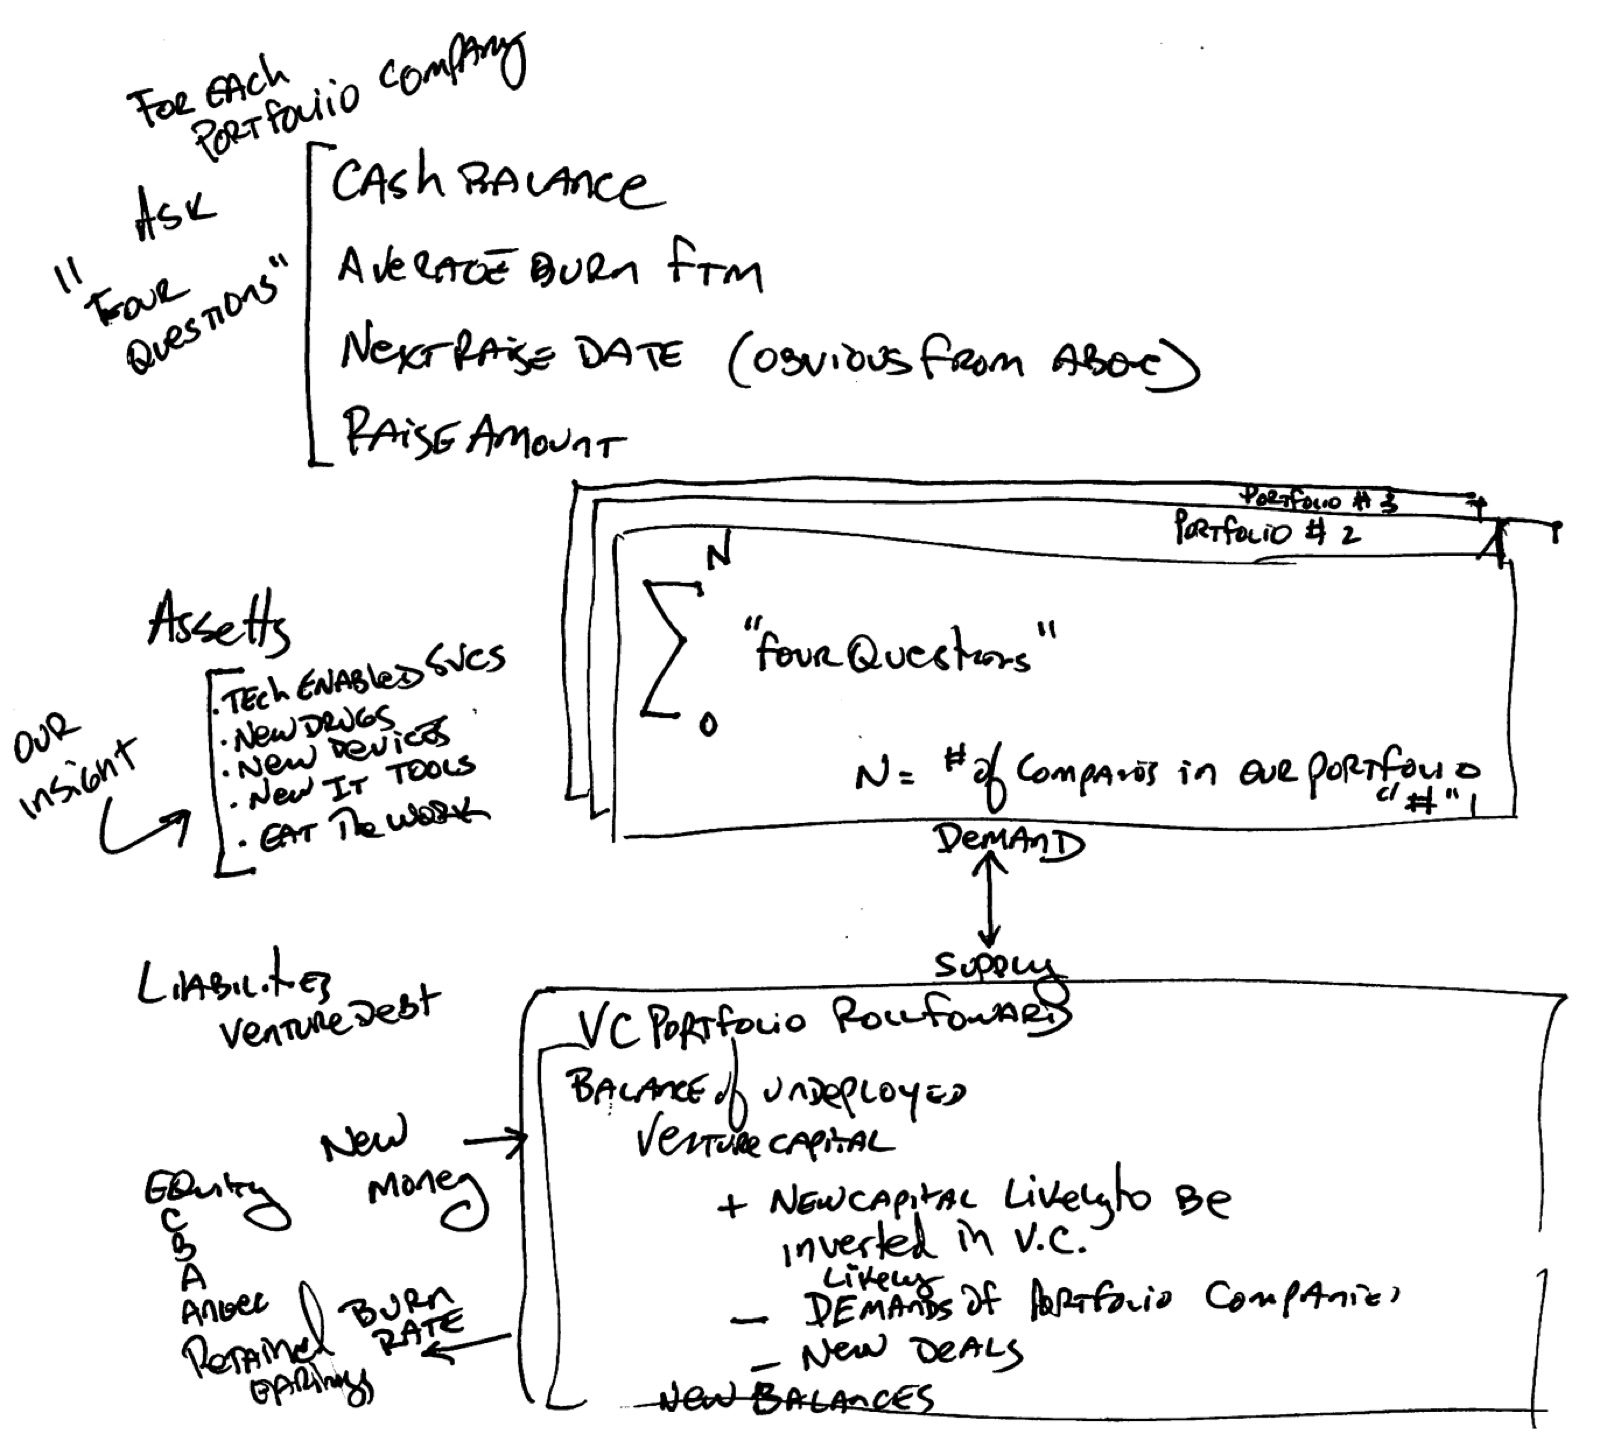 FOR EACH
PORTFOLIO COMPANY
ASK
"FOUR
QUESTIONS"
CASH BALANCE
AVERAGE BURN FTM
NEXT RAISE DATE (OBVIOUS FROM ABOVE)
RAISE AMOUNT
PORTFOLIO # 3
PORTFOLIO # 2
N
"FOUR QUESTIONS"
0
N = # of COMPANIES in OUR PORTFOLIO
"#" 1
ASSETTS
. TECH ENABLED SVCS
. NEW DRUGS
. NEW DEVICES
. NEW IT TOOLS
. EAT THE WORK
OUR
INSIGHT
DEMAND
SUPPLY
LIABILITIES
VENTURE DEBT
NEW
MONEY
EQUITY
C
B
A
ANGEL
RETAINED
EARINGS
BURN
RATE
VC PORTFOLIO ROLLFOWARD
BALANCE of UNDEPLOYED
VENTURE CAPITAL
+ NEW CAPITAL LIKELY to BE
INVERTED IN V.C.
LIKELY
— DEMANDS of PORTFOLIO COMPANIES
— NEW DEALS
NEW BALANCES